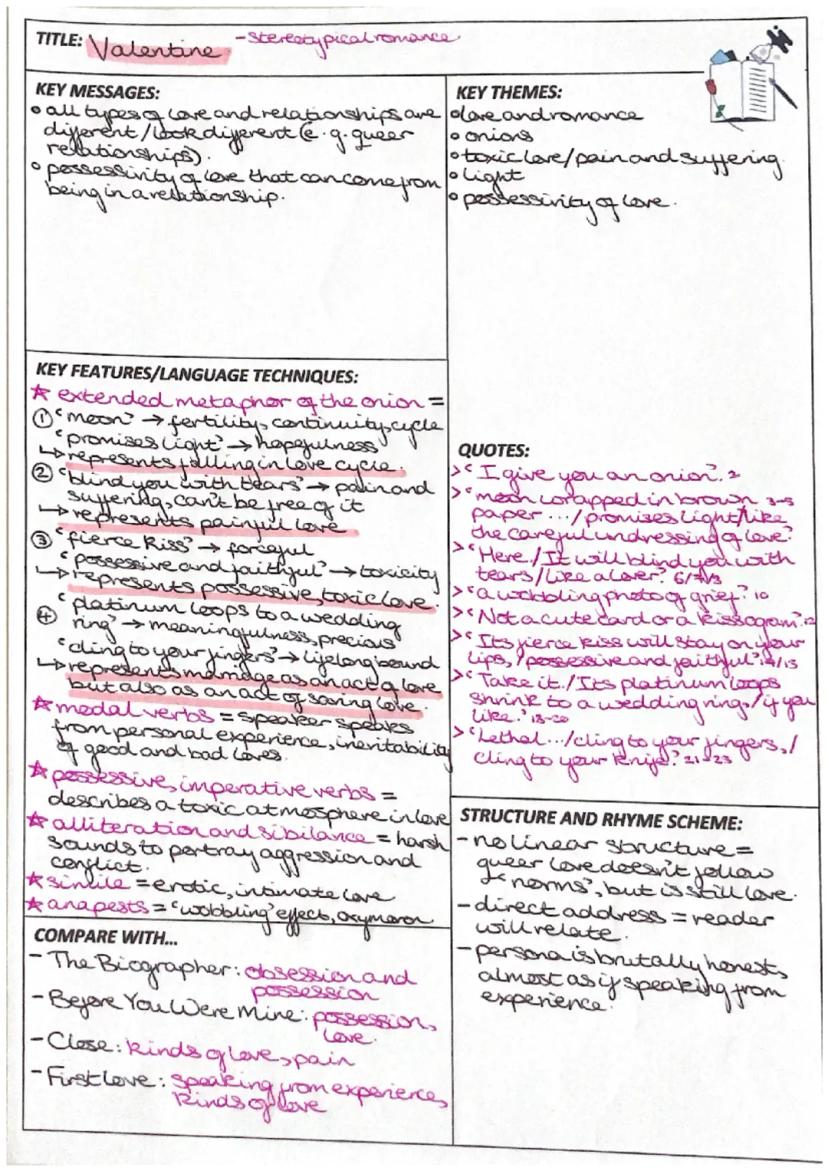 TITLE: Valentine - stereotypical romance
KEY MESSAGES:
• all types of love and relationships are
different / look different (e.g. queer
relationships).
• possessivity of love that can come from
being in a relationship.
KEY THEMES:
• love and romance
• onions
• toxic love/pain and suffering
• light
• possessivity of love.
KEY FEATURES/LANGUAGE TECHNIQUES:
☆ extended metaphor of the onion =
① 'moon' → fertility, continuity, cycle
'promises light' → hopefulness
↳ represents falling in love cycle.
② 'blind you with tears' → pain and
suffering, can't be free of it
↳ represents painful love
③ 'fierce kiss' → forceful
'possessive and faithful' → toxicity
↳ represents possessive, toxic love.
④ 'platinum loops to a wedding
ring' → meaningfulness, precious
'cling to your fingers' → lifelong bound
↳ represents marriage as an act of love
but also as an act of saving love.
☆ medal verbs = speaker speaks
from personal experience, inevitability
of good and bad loves.
☆ possessive, imperative verbs =
describes a toxic atmosphere in love
☆ alliteration and sibilance = harsh
sounds to portray aggression and
conflict.
☆ simile = erotic, intimate love
☆ anapests = 'wobbling' effects, oxymoron
QUOTES:
> 'I give you an onion'. 2
> 'moon wrapped in brown 3-5
paper .../promises light/like
the careful undressing of love'.
> 'Here./It will blind you with
tears/like a lover'. 6/7/8
> 'a wobbling photo of grief'. 10
> 'Not a cute card or a kissogram'. 12
> 'Its fierce kiss will stay on your
lips,/possessive and faithful'. 14/15
> 'Take it./Its platinum loops
shrink to a wedding ring,/if you
like.' 18-20
> 'Lethal.../cling to your fingers,/
cling to your knife'. 21-23
STRUCTURE AND RHYME SCHEME:
- no linear structure =
queer love doesn't follow
'norms', but is still love.
- direct address = reader
will relate.
- persona is brutally honest,
almost as if speaking from
experience.
COMPARE WITH...
- The Biographer: obsession and
possession
- Before You Were Mine: possession,
love.
- Close: kinds of love, pain
- First Love: speaking from experience,
kinds of love